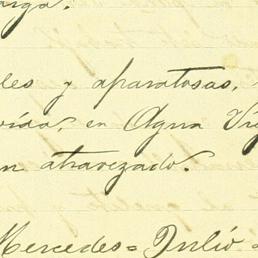 arga.
les y aparatosas,
rida, en Agua Vi
n atravezado.
Mercedes = Julio =